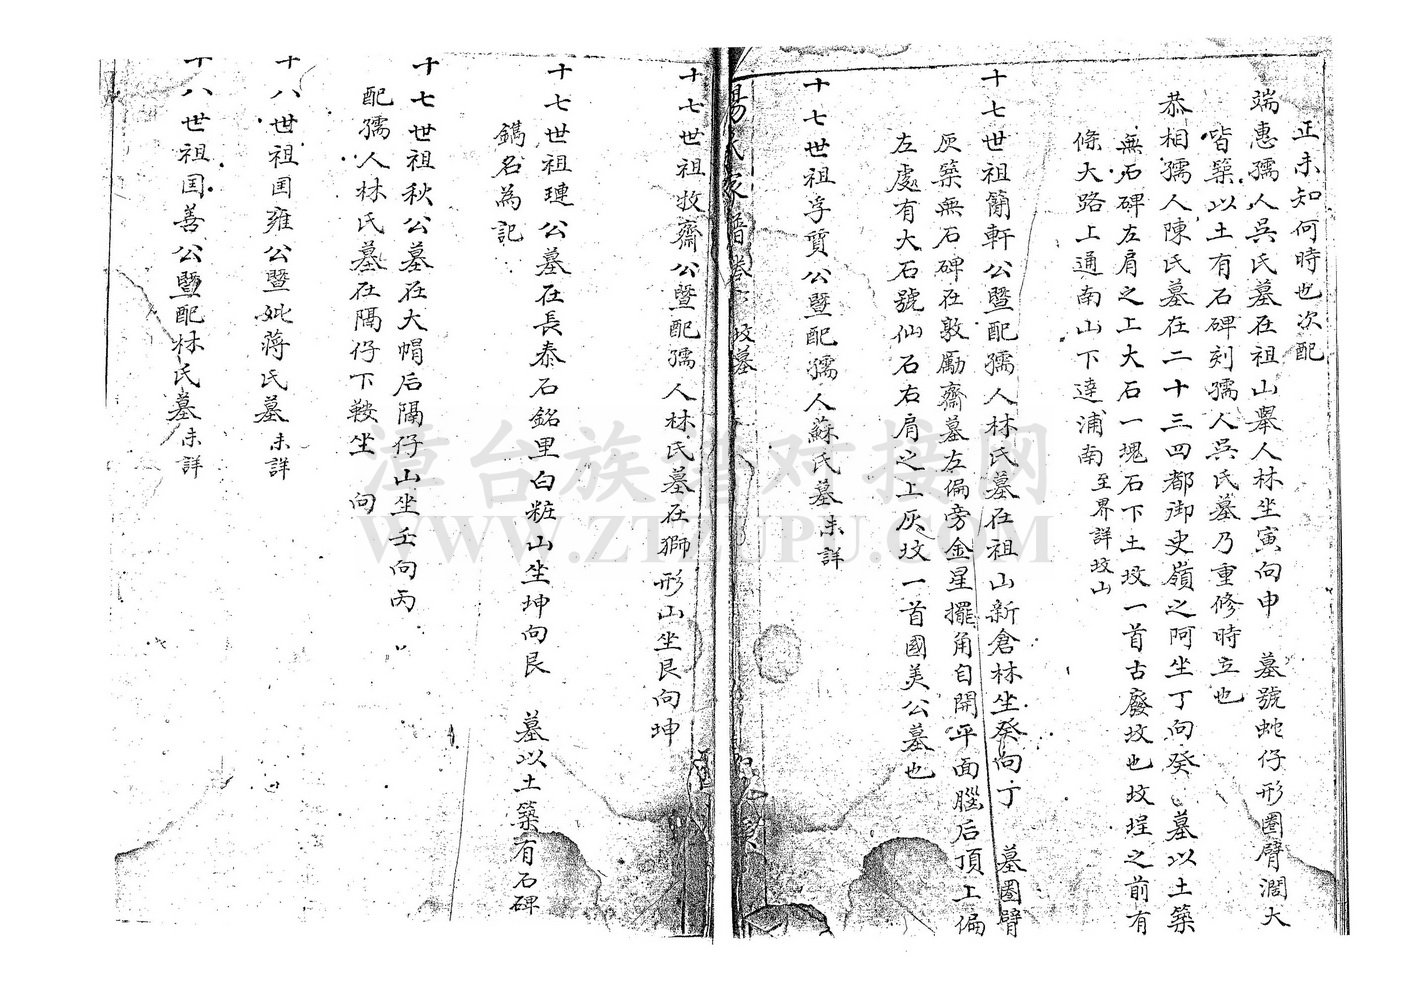 正未知何時也次配
端惠孺人吳氏墓在祖山舉人林坐寅向申 墓號蛇仔形圈臂濶大
皆築以土有石碑刻孺人吳氏墓乃重修時立也
恭相孺人陳氏墓在二十三四都御史嶺之阿坐丁向癸 墓以土築
無石碑左肩之上大石一塊石下土坟一首古廢坟也坟埕之前有
條大路上通南山下達浦南至界詳坟山
十七世祖簡軒公暨配孺人林氏墓在祖山新倉林坐癸向丁 墓圈臂
灰築無石碑在敦勵齋墓左偏旁金星擺角自開平面腦后頂上偏
左處有大石號仙石右肩之上灰坟一首國美公墓也
十七世祖孚質公暨配孺人蘇氏墓未詳
楊氏家譜卷 坟墓
十七世祖牧齋公暨配孺人林氏墓在獅形山坐艮向坤
十七世祖璉公墓在長泰石銘里白粧山坐坤向艮 墓以土築有石碑
鐫名為記
十七世祖秋公墓在大帽后隔仔山坐壬向丙
配孺人林氏墓在隔仔下鞍坐 向
十八世祖国雍公暨妣蔣氏墓未詳
十八世祖国善公暨配林氏墓未詳
漳台族譜对接网
WWW.ZTZUPU.COM